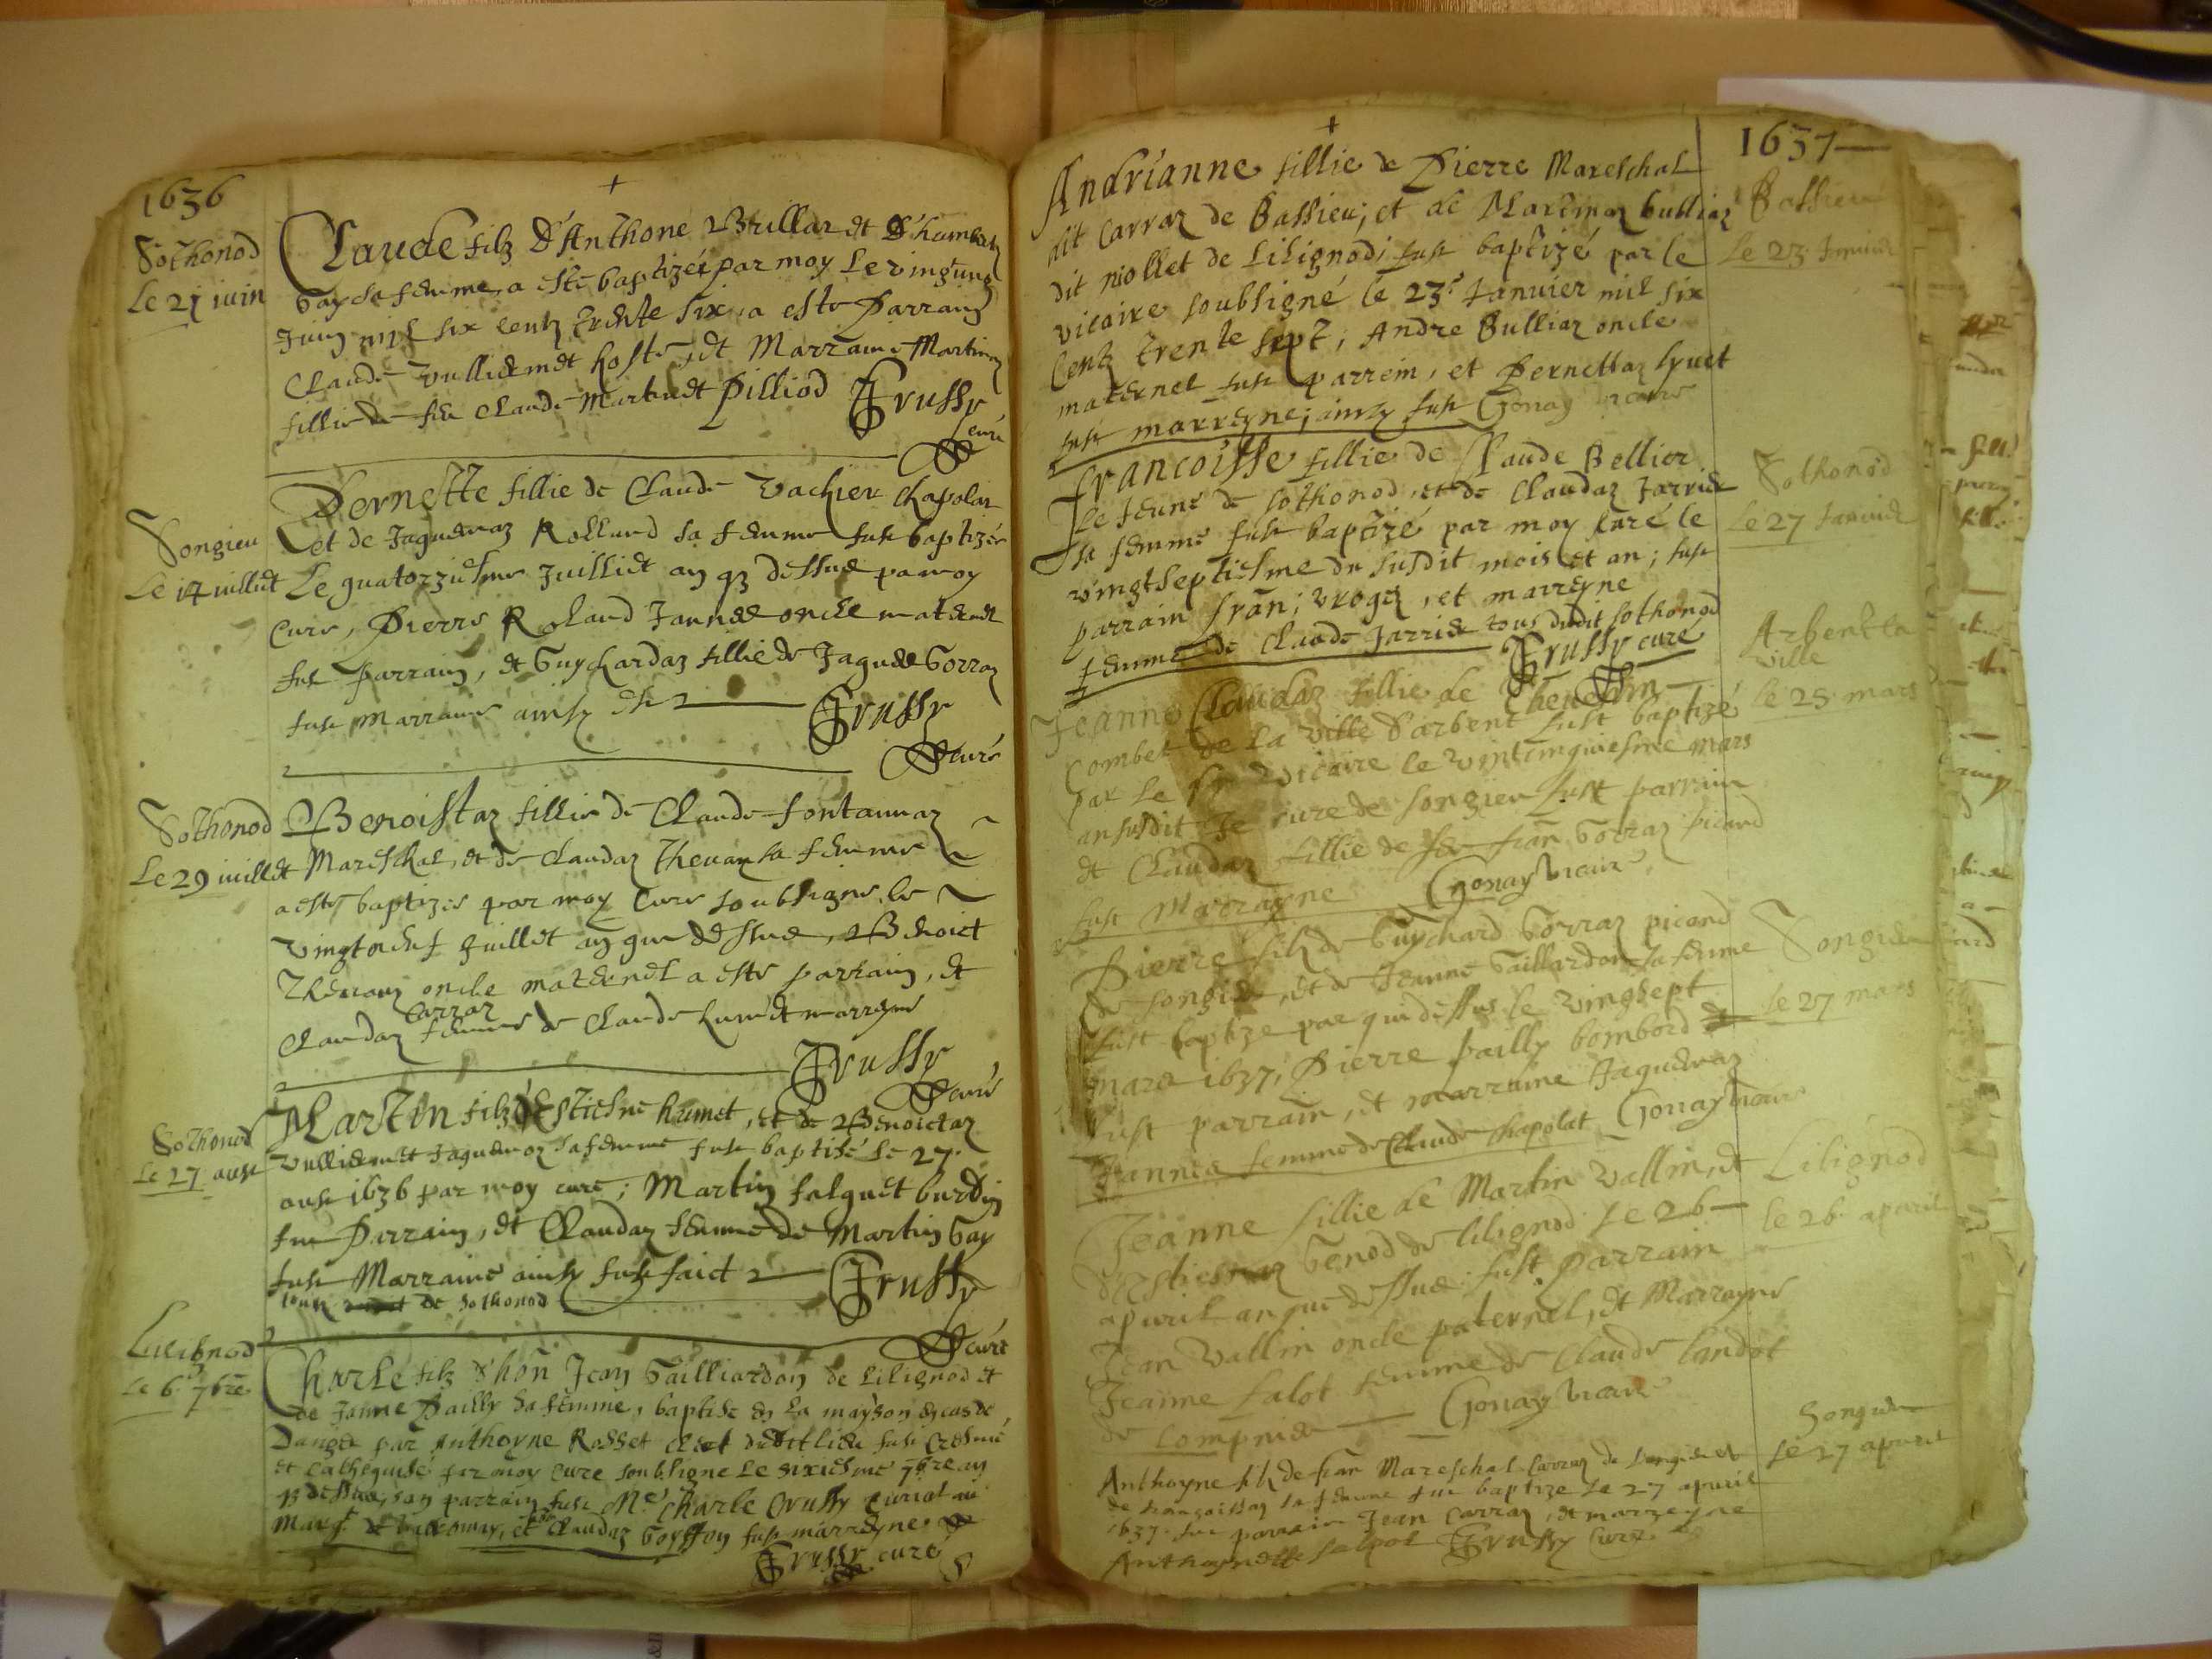 1636
Sothonod
Le 21 iuin
Claude filz d'Anthone Brillat et d'humberte
Gay sa femme, a esté baptizé par moy Le vingtung
Juing mil six centz trente six, a este Parraing
Claude Vulliemet hoste, et Marraine Martinaz
fillie de feu Claude Martin et Pilliod Trussy
curé
Songieu
Le 14 iuilliet
Pernette fillie de Claude Vachier Chapolat
et de Jaquemaz Rolland sa femme fust baptizée
Le quatorziesme Juilliet an q3 dessus pa moy
Curé, Pierre Roland Jannee oncle maternel
fust parraing, et Guychardaz fillie de Jaques Gorraz
fust marraine ainsy est Trussy
curé
Sothonod
Le 29 iuilliet
Benoistaz fillie de Claude fontannaz
Mareschal, et de Claudaz Thevan sa femme
a esté baptizée par moy Curé soubsigné le
vingtneuf Juillet an que dessus, Benoict
Thevan oncle maternel a esté parraing, et
Carraz
Claudaz femme de Claude humet marreyne
Trussy
curé
Sothonod
Le 27 aust
Martin filz d'Estiesne humet, et de Benoictaz
Vulliemet Jaquemoz sa femme fust baptisé Le 27.
aust 1636 par moy curé; Martin falquet burdin
fut Parraing, et Claudaz femme de Martin Gay
fust Marraine ainsy fust faict Trussy
tous de Sothonod
curé
Lilignod
Le 6. 7bre
Charle filz d'hon Jean Gailliardon de Lilignod et
de Janne Pailly sa femme, baptisé en La mayson en cas de
danger par Anthoyne Rosset clerc dudit lieu fust cresmé
et cathequisé par moy Curé soubsigné Le sixiesme 7bre an
q3 dessus, son parrain fust Me Charle Trussy curial au
Marqt de Valromay, et Claudaz Gorffon fust marreyne
Trussy curé
1637
Bassieu
Le 23. Januier
Andrianne fillie de Pierre Mareschal
dit Carraz de Bassieu; et de Martinaz bulliaz
dit niollet de Lilignod; fust baptizé par le
vicaire soubsigné le 23e Januier mil six
Centz trente sept; Andre Bulliaz oncle
maternel fust parrein, et Pernettaz hruet
fust marreyne; ainsy fust Gonay vicaire
Sothonod
Le 27 Januier
Francoisse fillie de Claude Bellier
Le Jeune de Sothonod, et de Claudaz Jarrier
sa femme fust baptizé par moy Curé le
vingtseptiesme du susdit mois et an; fust
parrain fran; et marreyne
femme de Claude Jarrier tous dudit Sothonod
Trussy curé
Arbent la
ville
le 25 mars
Jeanne Claudaz fillie de
Combet de La ville d'arbent fust baptizé
par Le sr Vicaire le vintcinquiesme mars
an susdit Le curé de Songieu fust parrain
et Claudaz fillie de feu fran Gorraz picard
fust Marrayne Gonay vicaire
Songieu
le 27 mars
Pierre filz de Guychard Gorraz picard
de Songieu, et de Jeanne Gaillardon sa femme
fust baptizé par qui dessus le vingtsept
mars 1637; Pierre pailly bombord
fust parrain, et marraine Jaquemaz
Jannea femme de Claude Chapolat Gonay vicaire
Lilignod
le 26 apuril
Jeanne fillie de Martin Vallin, et
d'estiesnaz Genod de lilignod le 26
apuril an que dessus; fust parrain
Jean Vallin oncle paternel, et Marrayne
Jeanne Lalot femme de Claude landot
de Lompnieu Gonay vicaire
Songieu
le 27 apuril
Anthoyne filz de fran Mareschal Carraz de Songieu et
de sa femme fut baptizé Le 27 apuril
1637. fut parrain Jean Carraz, et marreyne
Anthoynette Trussy Curé